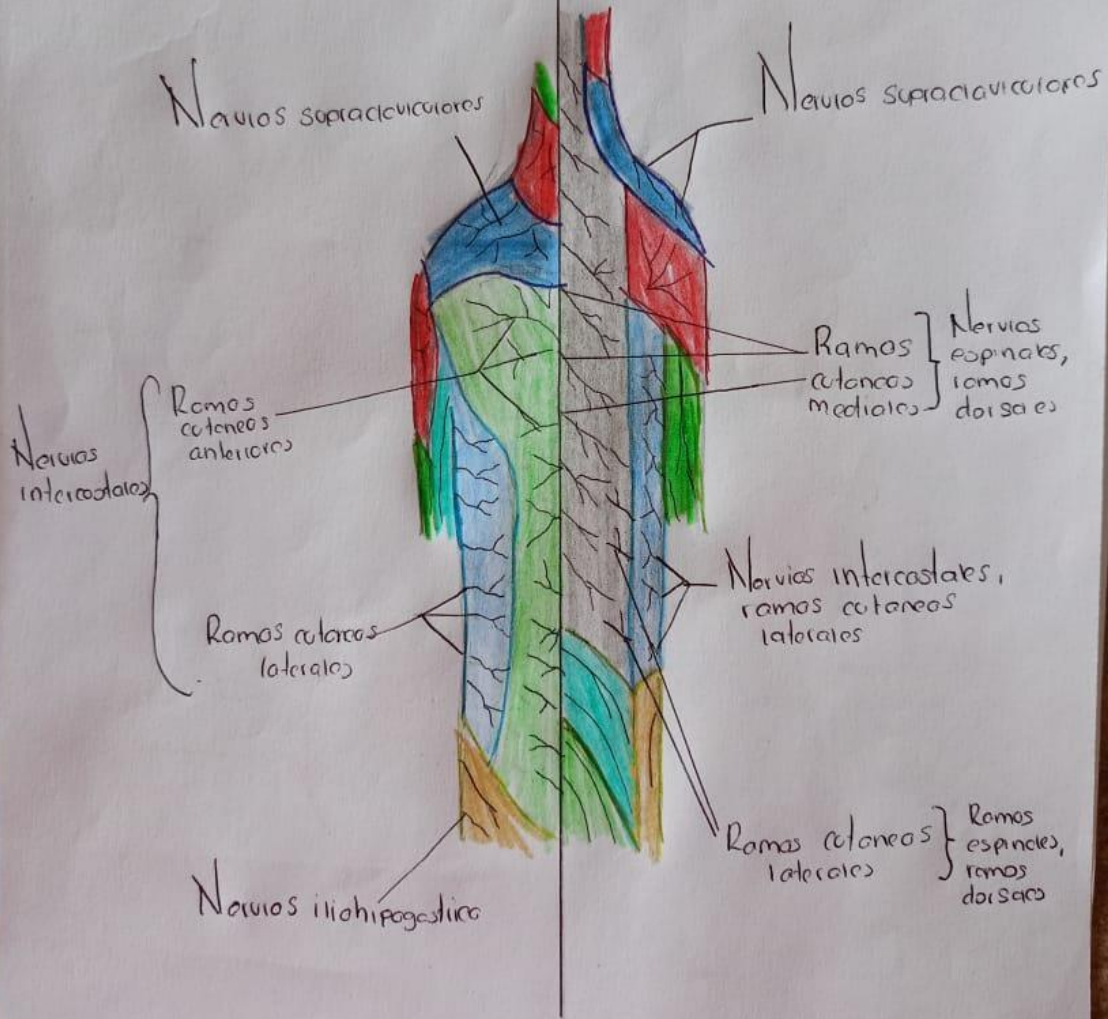 Nervios supraclaviculares
Nervios supraclaviculares
Ramos
cutaneos
mediales
Nervios
espinales,
ramos
dorsaes
Ramos
cutaneos
anteriores
Nervios
intercostales
Nervios intercostales,
ramos cutaneos
laterales
Ramos cutaneos
laterales
Ramas cutaneos
laterales
Ramos
espinales,
ramos
dorsaes
Nervios iliohipogastrico